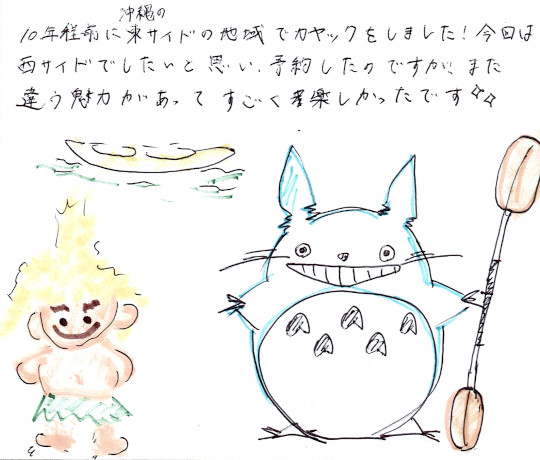 沖縄の
10年程前に東サイドの地域でカヤックをしました!今回は
西サイドでしたいと思い、予約したのですが、また
違う魅力があってすごく楽しかったです